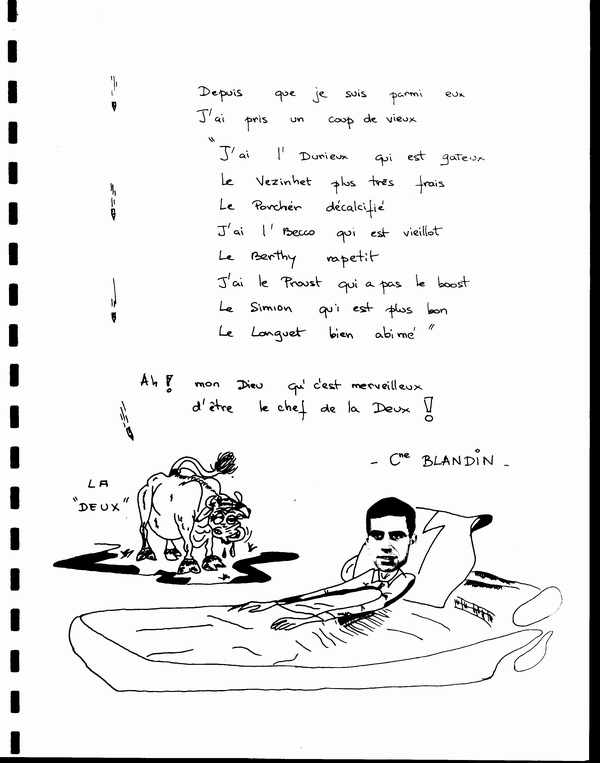 Depuis que je suis parmi eux
J'ai pris un coup de vieux
" J'ai l' Durieux qui est gateux
Le Vezinhet plus très frais
Le Porcher décalcifié
J'ai l' Becco qui est vieillot
Le Berthy rapetit
J'ai le Proust qui a pas le boost
Le Simion qui est plus bon
Le Longuet bien abimé "
Ah ! mon Dieu qu' c'est merveilleux
d'être le chef de la Deux !
- Cne BLANDIN -
LA
"DEUX"